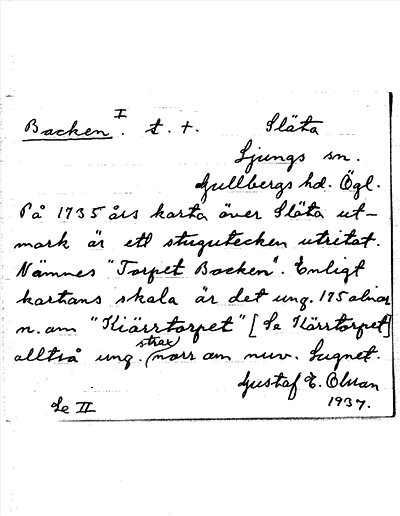 Backen I. t. +. Släta
Ljungs sn.
Gullbergs hd. Ögl.
På 1735 års karta över Släta ut-
mark är ett stugutecken utritat.
Nämnes "Torpet Backen". Enligt
kartans skala är det ung. 175 alnar
n. om "Kiärrtorpet" [Se Kärrtorpet]
alltså ung. (strax) norr om nuv. Lugnet.
Gustaf E. Olsson
1937.
Se II